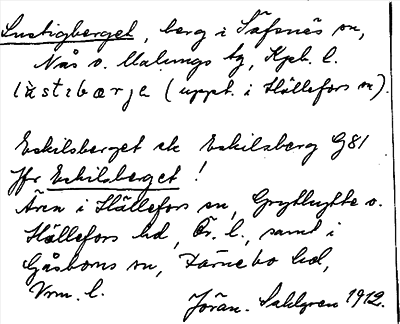 Lustigberget, berg i Säfsnäs sn,
Nås o. Malungs tg, Kpb. l.
lùstıbærjə (uppt. i Hällefors sn).
Eskilsberget ek Eskilsberg G81
Jfr Eskilsberget!
Även i Hällefors sn, Grythytte o.
Hällefors hd, Ör. l., samt i
Gåsborns sn, Färnebo hd,
Vrm. l.
Jöran Sahlgren 1912.